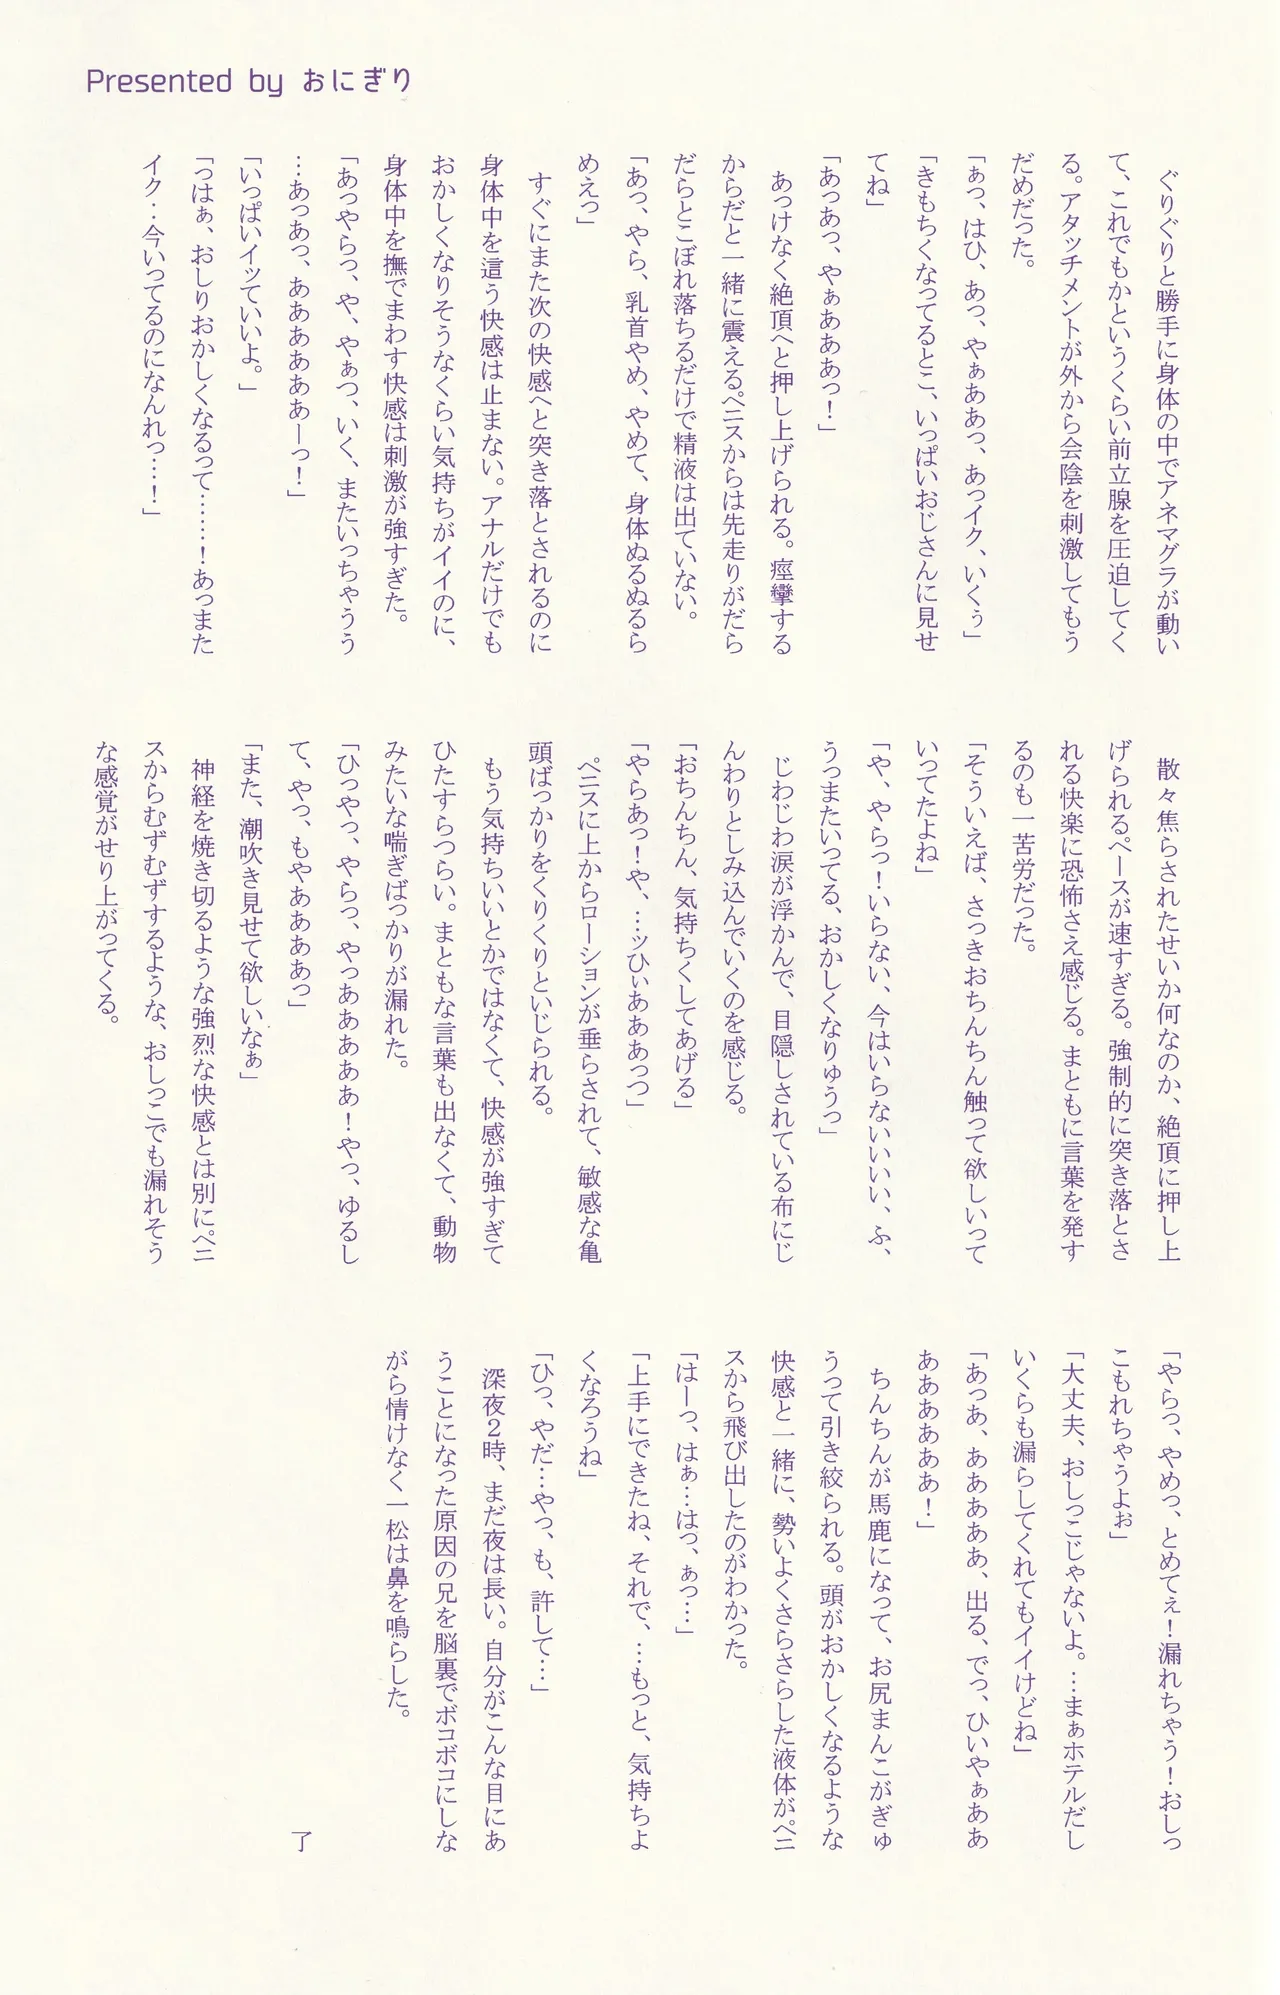 Presented by おにぎり
　ぐりぐりと勝手に身体の中でアネマグラが動い
て、これでもかというくらい前立腺を圧迫してく
る。アタッチメントが外から会陰を刺激してもう
だめだった。
「ぁっ、はひ、あっ、やぁああっ、あっイク、いくぅ」
「きもちくなってるとこ、いっぱいおじさんに見せ
てね」
「あっあっ、やぁあああっ！」
　あっけなく絶頂へと押し上げられる。痙攣する
からだと一緒に震えるペニスからは先走りがだら
だらとこぼれ落ちるだけで精液は出ていない。
「あっ、やら、乳首やめ、やめて、身体ぬるぬるら
めえっ」
　すぐにまた次の快感へと突き落とされるのに
身体中を這う快感は止まない。アナルだけでも
おかしくなりそうなくらい気持ちがイイのに、
身体中を撫でまわす快感は刺激が強すぎた。
「あっやらっ、や、やぁつ、いく、またいっちゃうう
…あっあっ、あああああーっ！」
「いっぱいイッていいよ。」
「っはぁ、おしりおかしくなるって……！あっまた
イク‥今いってるのになんれっ…！」
　散々焦らされたせいか何なのか、絶頂に押し上
げられるペースが速すぎる。強制的に突き落とさ
れる快楽に恐怖さえ感じる。まともに言葉を発す
るのも一苦労だった。
「そういえば、さっきおちんちん触って欲しいって
いってたよね」
「や、やらっ！いらない、今はいらないいい、ふ、
うっまたいってる、おかしくなりゅうっ」
　じわじわ涙が浮かんで、目隠しされている布にじ
んわりとしみ込んでいくのを感じる。
「おちんちん、気持ちくしてあげる」
「やらあっ！や、…ッひぃあああっつ」
　ペニスに上からローションが垂らされて、敏感な亀
頭ばっかりをくりくりといじられる。
　もう気持ちいいとかではなくて、快感が強すぎて
ひたすらつらい。まともな言葉も出なくて、動物
みたいな喘ぎばっかりが漏れた。
「ひっやっ、やらっ、やっああああ！やっ、ゆるし
て、やっ、もやあああっ」
「また、潮吹き見せて欲しいなぁ」
　神経を焼き切るような強烈な快感とは別にペニ
スからむずむずするような、おしっこでも漏れそう
な感覚がせり上がってくる。
「やらっ、やめっ、とめてぇ！漏れちゃう！おしっ
こもれちゃうよぉ」
「大丈夫、おしっこじゃないよ。…まぁホテルだし
いくらも漏らしてくれてもイイけどね」
「あっあ、あああああ、出る、でっ、ひいやぁああ
ああああああ！」
　ちんちんが馬鹿になって、お尻まんこがぎゅ
うって引き絞られる。頭がおかしくなるような
快感と一緒に、勢いよくさらさらした液体がペニ
スから飛び出したのがわかった。
「はーっ、はぁ…はっ、ぁっ…」
「上手にできたね、それで、…もっと、気持ちよ
くなろうね」
「ひっ、やだ…やっ、も、許して…」
　深夜２時、まだ夜は長い。自分がこんな目にあ
うことになった原因の兄を脳裏でボコボコにしな
がら情けなく一松は鼻を鳴らした。
了